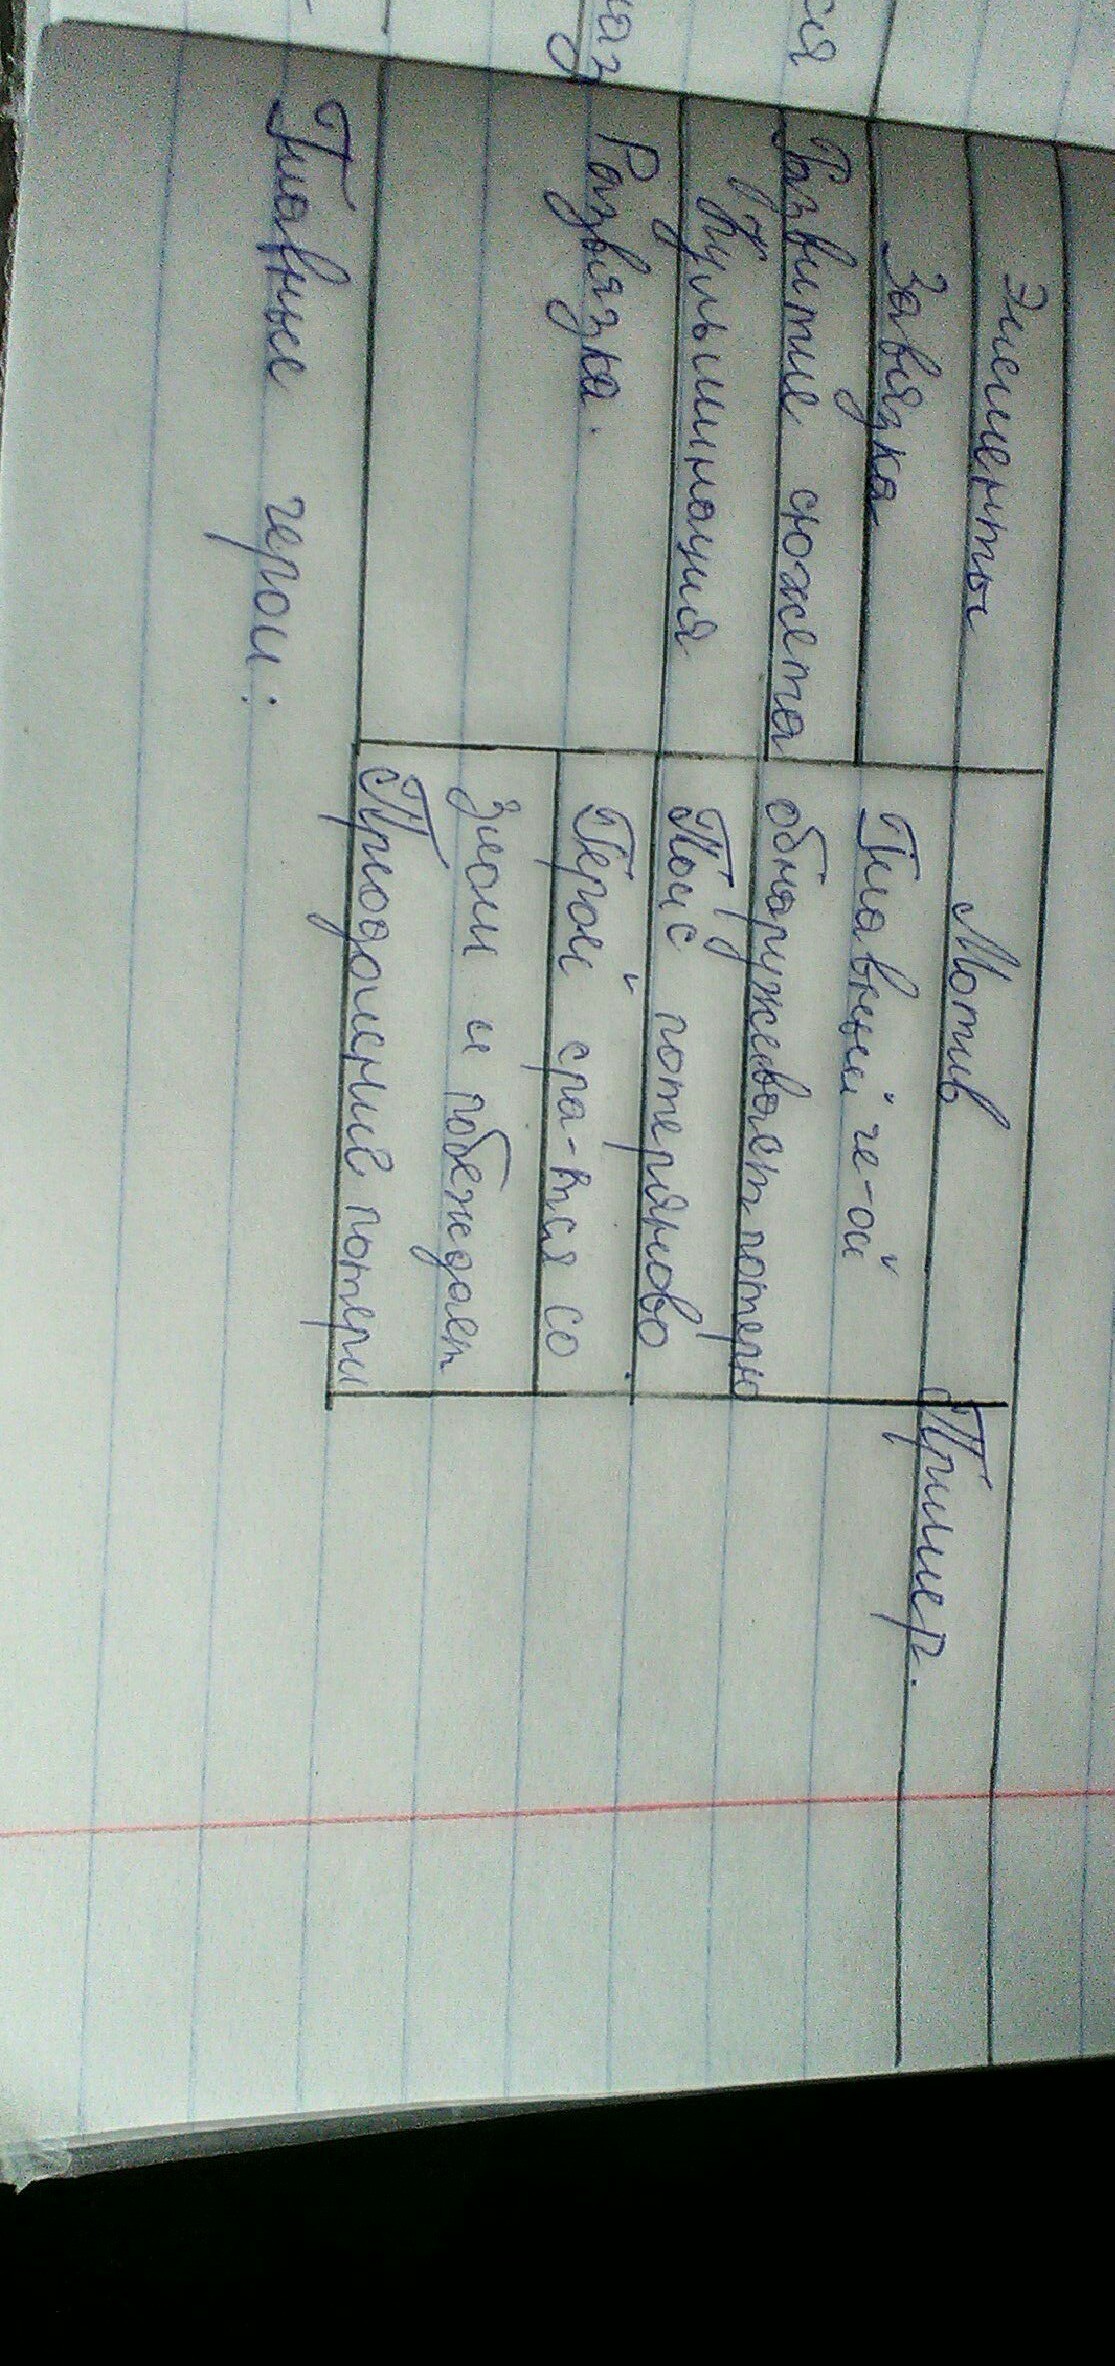 Элементы Мотив Пример.
Завязка Главный ге-ой
Развитие сюжета обнаруживает потерю
Кульминация Поис потеряново
Развязка. Герой сра-тся со
Злом и побеждает
Приодоление потери
Главные герои: